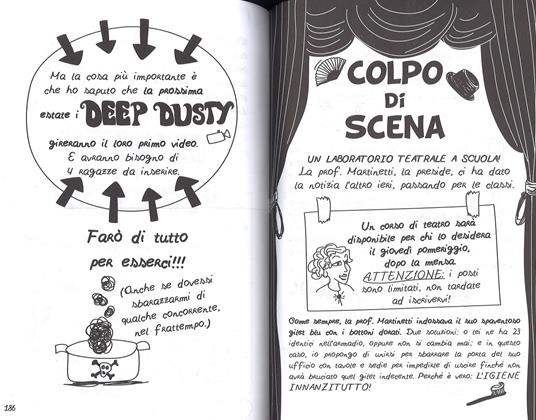 Ma la cosa più importante è
che ho saputo che la prossima
estate i DEEP DUSTY
gireranno il loro primo video.
E avranno bisogno di
4 ragazze da inserire.
Farò di tutto
per esserci!!!
(Anche se dovessi
sbarazzarmi di
qualche concorrente,
nel frattempo.)
186
COLPO
Di
SCENA
UN LABORATORIO TEATRALE A SCUOLA!
La prof. Martinetti, la preside, ci ha dato
la notizia l'altro ieri, passando per le classi.
Un corso di teatro sarà
disponibile per chi lo desidera
il giovedì pomeriggio,
dopo la mensa.
ATTENZIONE: i posti
sono limitati, non tardate
ad iscrivervi!
Come sempre, la prof. Martinetti indossava il suo spaventoso
gilet blu con i bottoni dorati. Due soluzioni: o lei ne ha 23
identici nell'armadio, oppure non si cambia mai: e in questo
caso, io propongo di unirsi per sbarrare la porta del suo
ufficio con tavole e sedie per impedirle di uscire finché non
avrà bruciato quel gilet indecente. Perché è vero: L'IGIENE
INNANZITUTTO!